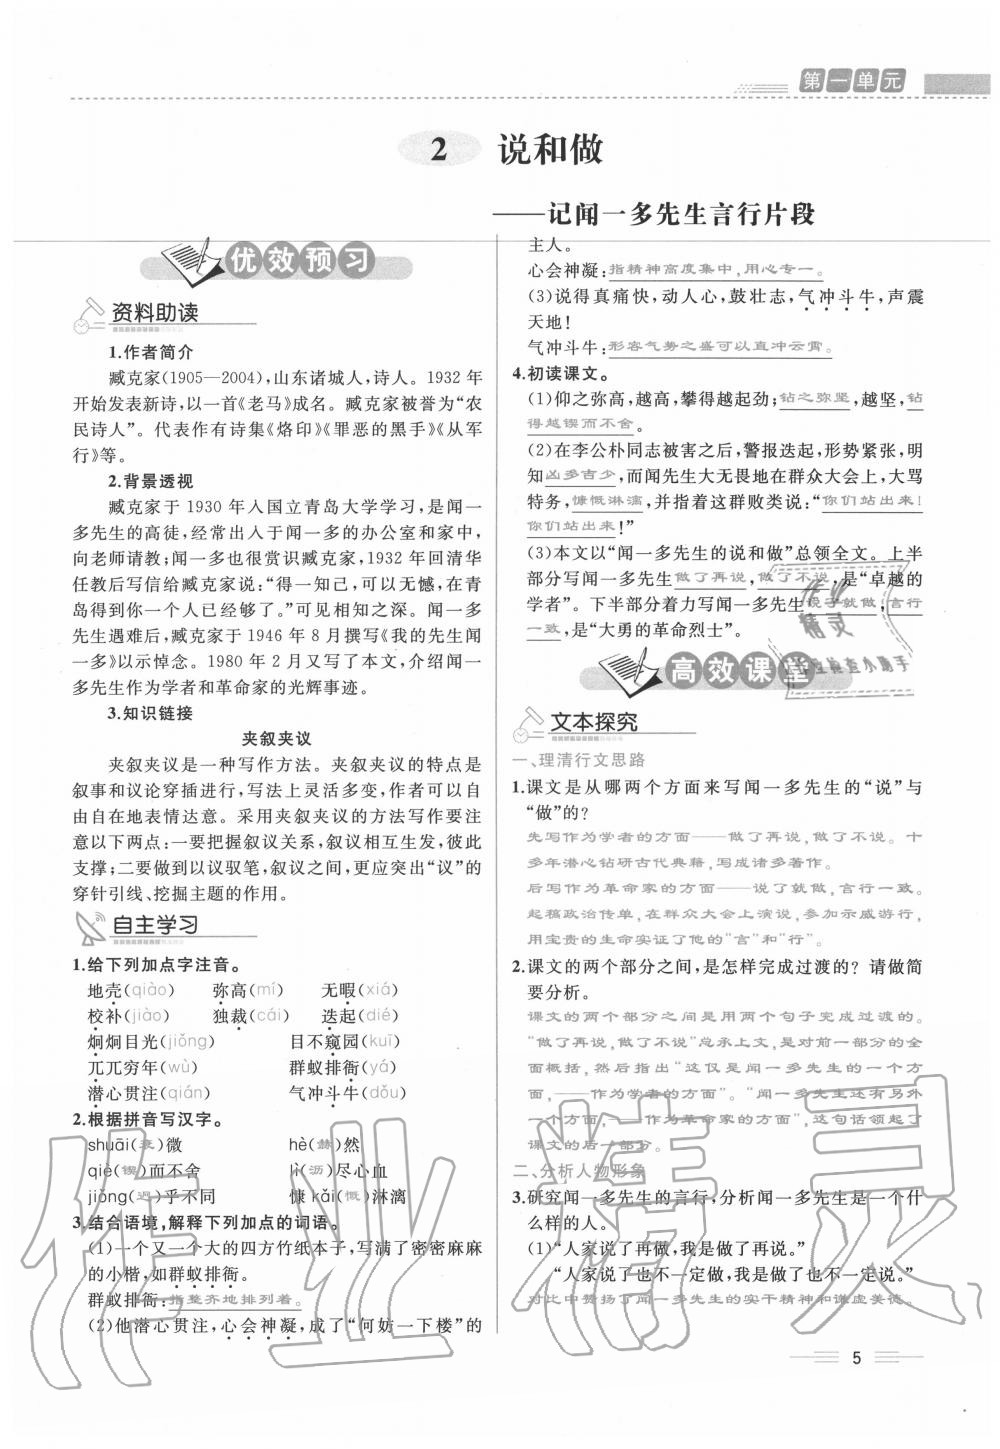 第一单元
2 说和做
——记闻一多先生言行片段
优效预习
资料助读
1.作者简介
臧克家(1905—2004),山东诸城人,诗人。1932年
开始发表新诗,以一首《老马》成名。臧克家被誉为“农
民诗人”。代表作有诗集《烙印》《罪恶的黑手》《从军
行》等。
2.背景透视
臧克家于1930年入国立青岛大学学习,是闻一
多先生的高徒,经常出入于闻一多的办公室和家中,
向老师请教;闻一多也很赏识臧克家,1932年回清华
任教后写信给臧克家说:“得一知己,可以无憾,在青
岛得到你一个人已经够了。”可见相知之深。闻一多
先生遇难后,臧克家于1946年8月撰写《我的先生闻
一多》以示悼念。1980年2月又写了本文,介绍闻一
多先生作为学者和革命家的光辉事迹。
3.知识链接
夹叙夹议
夹叙夹议是一种写作方法。夹叙夹议的特点是
叙事和议论穿插进行,写法上灵活多变,作者可以自
由自在地表情达意。采用夹叙夹议的方法写作要注
意以下两点:一要把握叙议关系,叙议相互生发,彼此
支撑;二要做到以议驭笔,叙议之间,更应突出“议”的
穿针引线、挖掘主题的作用。
自主学习
1.给下列加点字注音。
地壳(qiào) 弥高(mí) 无暇(xiá)
校补(jiào) 独裁(cái) 迭起(dié)
炯炯目光(jiǒng) 目不窥园(kuī)
兀兀穷年(wù) 群蚁排衙(yá)
潜心贯注(qián) 气冲斗牛(dǒu)
2.根据拼音写汉字。
shuāi(衰)微 hè(赫)然
qiè(锲)而不舍 lì(沥)尽心血
jiǒng(迥)乎不同 慷kǎi(慨)淋漓
3.结合语境,解释下列加点的词语。
(1)一个又一个大的四方竹纸本子,写满了密密麻麻
的小楷,如群蚁排衙。
群蚁排衙:指整齐地排列着。
(2)他潜心贯注,心会神凝,成了“何妨一下楼”的
主人。
心会神凝:指精神高度集中,用心专一。
(3)说得真痛快,动人心,鼓壮志,气冲斗牛,声震
天地!
气冲斗牛:形容气势之盛可以直冲云霄。
4.初读课文。
(1)仰之弥高,越高,攀得越起劲;钻之弥坚,越坚,钻
得越锲而不舍。
(2)在李公朴同志被害之后,警报迭起,形势紧张,明
知凶多吉少,而闻先生大无畏地在群众大会上,大骂
特务,慷慨淋漓,并指着这群败类说:“你们站出来!
你们站出来!”
(3)本文以“闻一多先生的说和做”总领全文。上半
部分写闻一多先生做了再说,做了不说,是“卓越的
学者”。下半部分着力写闻一多先生说了就做,言行
一致,是“大勇的革命烈士”。
高效课堂
文本探究
一、理清行文思路
1.课文是从哪两个方面来写闻一多先生的“说”与
“做”的?
先写作为学者的方面——做了再说,做了不说。十
多年潜心钻研古代典籍,写成诸多著作。
后写作为革命家的方面——说了就做,言行一致。
起稿政治传单,在群众大会上演说,参加示威游行,
用宝贵的生命实证了他的“言”和“行”。
2.课文的两个部分之间,是怎样完成过渡的?请做简
要分析。
课文的两个部分之间是用两个句子完成过渡的。
“做了再说,做了不说”总承上文,是对前一部分的全
面概括,然后指出“这仅是闻一多先生的一个方
面,——作为学者的方面”。“闻一多先生还有另外
一个方面,——作为革命家的方面”,这句话领起了
课文的后一部分。
二、分析人物形象
3.研究闻一多先生的言行,分析闻一多先生是一个什
么样的人。
(1)“人家说了再做,我是做了再说。”
“人家说了也不一定做,我是做了也不一定说。”
对比中赞扬了闻一多先生的实干精神和谦虚美德。
5
作业精灵